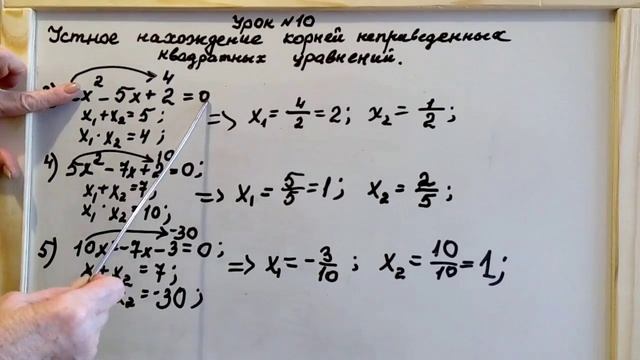 Урок №10
Устное нахождение корней неприведенных
квадратных уравнений.
4
x² - 5x + 2 = 0
x₁+x₂=5;
x₁·x₂=4;
=> x₁ = 4/2 = 2; x₂ = 1/2;
10
4) 5x² - 7x + 2 = 0;
x₁+x₂=7;
x₁·x₂=10;
=> x₁ = 5/5 = 1; x₂ = 2/5;
-30
5) 10x² - 7x - 3 = 0;
x₁+x₂=7;
x₂=-30;
=> x₁ = -3/10; x₂ = 10/10 = 1;